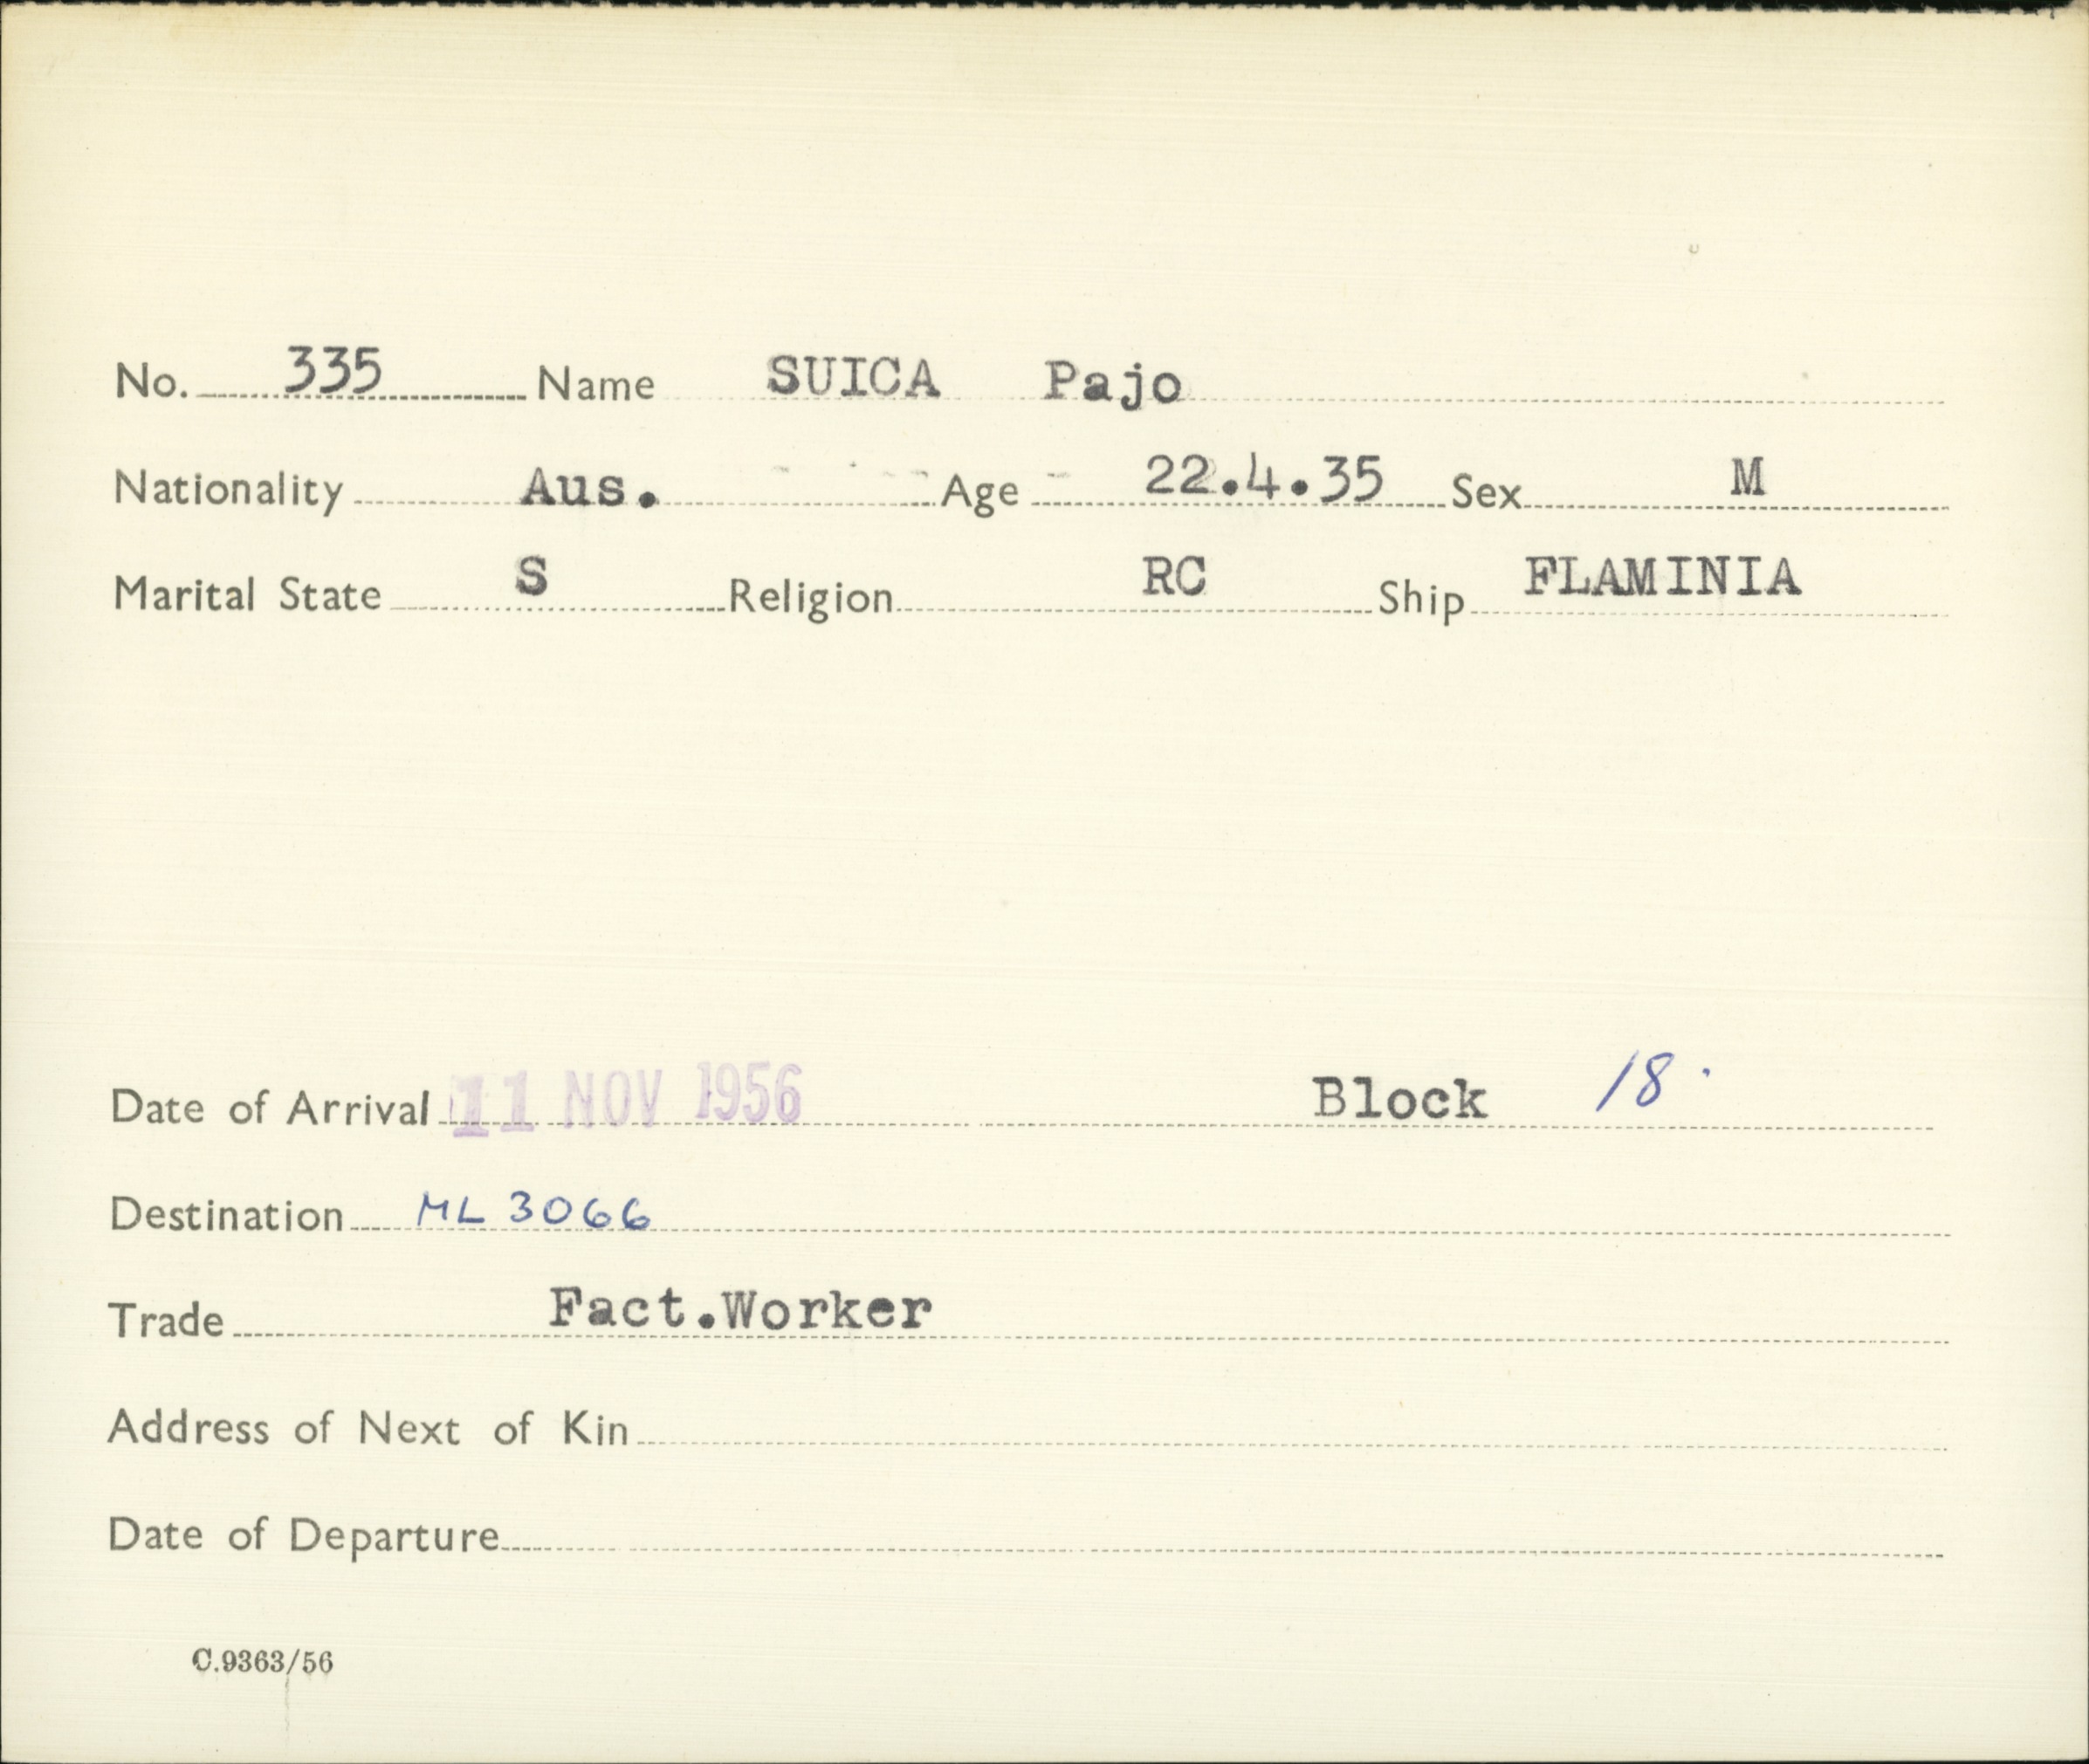 No. 335 Name SUICA Pajo
Nationality Aus. Age 22.4.35 Sex M
Marital State S Religion RC Ship FLAMINIA
Date of Arrival 11 NOV 1956 Block 18.
Destination ML 3066
Trade Fact.Worker
Address of Next of Kin
Date of Departure
C.9363/56